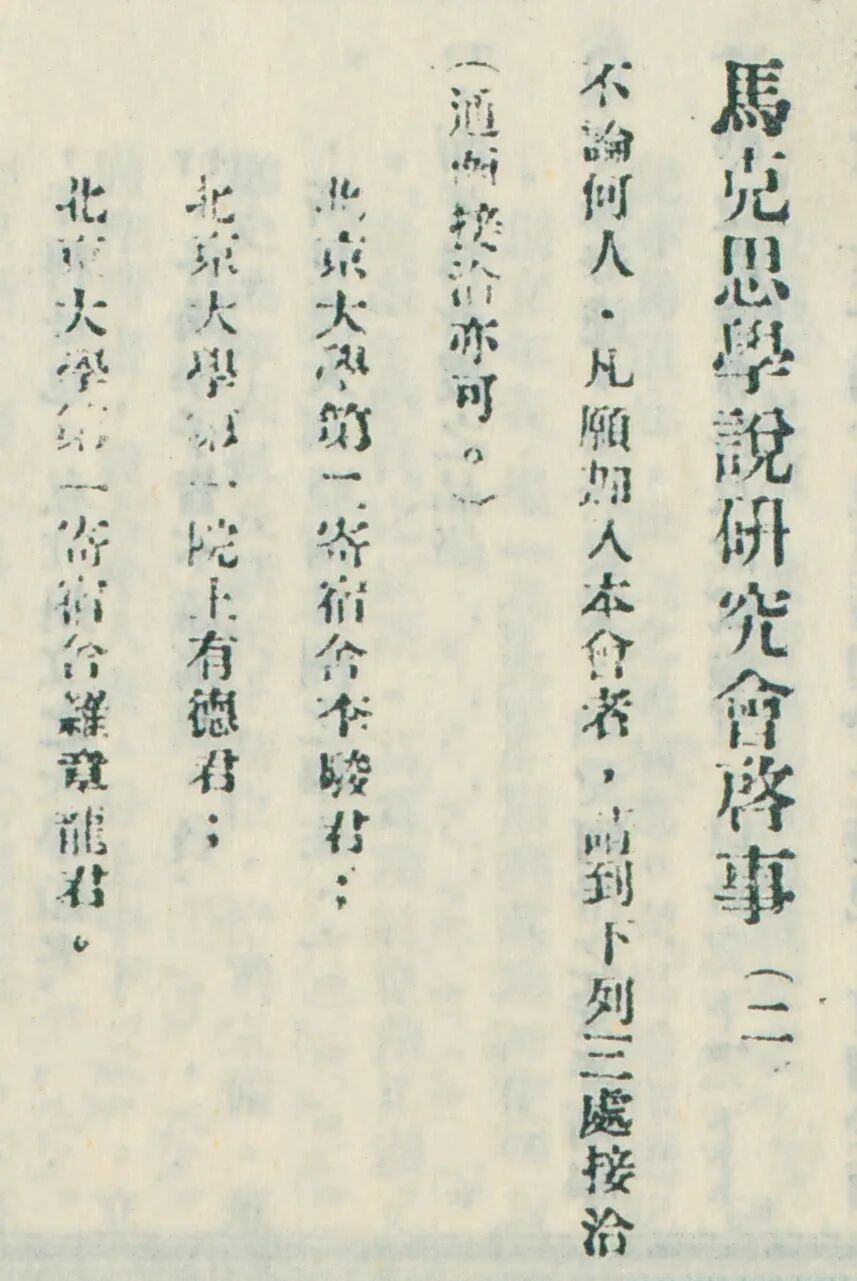 馬克思學說研究會啓事（二）
不論何人．凡願加入本會者，請到下列三處接洽
（通函接洽亦可。）
北京大學第二寄宿舍李駿君；
北京大學第一院王有德君；
北京大學第一寄宿舍羅章龍君。